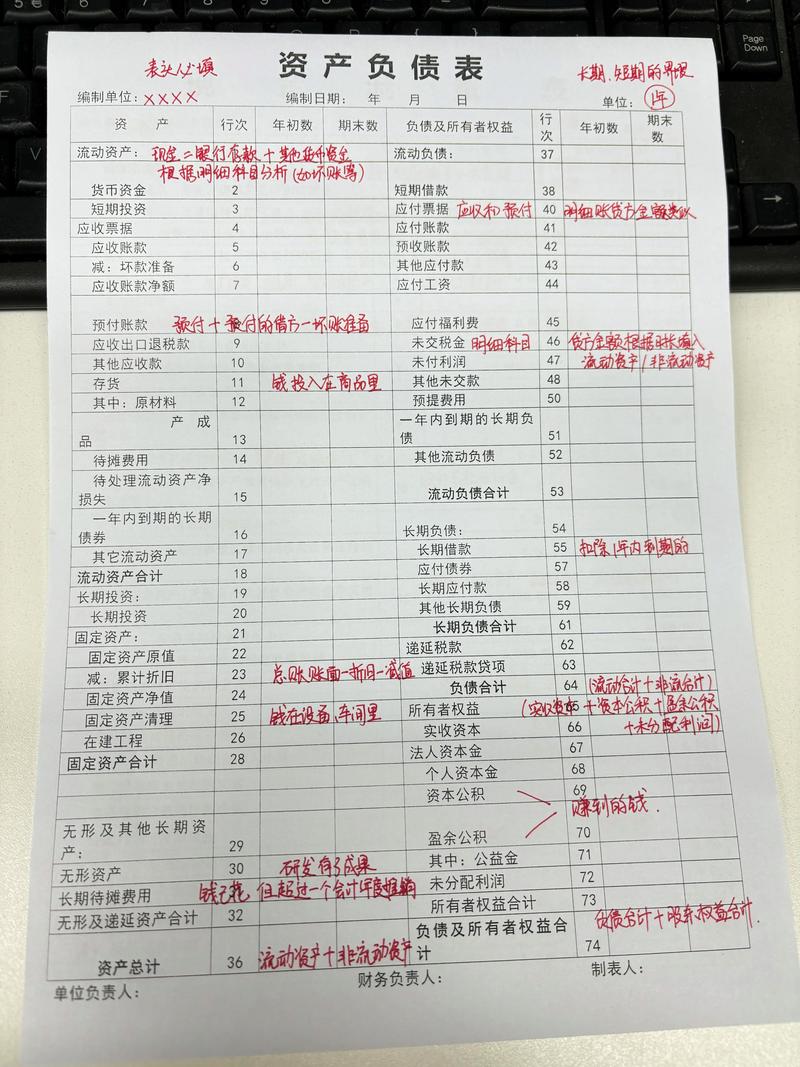 Page
Down
表头必填
资产负债表
长期、短期的界限
编制单位：XXXX 编制日期： 年 月 日 单位：1年
资 产 行次 年初数 期末数 负债及所有者权益 行次 年初数 期末数
流动资产： 现金=银行存款+其他货币资金 流动负债： 37
根据明细科目分析(如坏账等)
货币资金 2 短期借款 38
短期投资 3 应付票据 应收和预付 40 明细账贷方金额类以
应收票据 4 应付账款 41
应收账款 5 预收账款 42
减：坏款准备 6 其他应付款 43
应收账款净额 7 应付工资 44
预付账款 预付+预付的借方-坏账准备 应付福利费 45
应收出口退税款 9 未交税金 明细科目 46 贷方金额根据时长填入
其他应收款 10 未付利润 47 流动资产/非流动资产
存货 11 钱投入在商品里 其他未交款 48
其中：原材料 12 预提费用 50
产成品 13 一年内到期的长期负债 51
待摊费用 14 其他流动负债 52
待处理流动资产净损失 15 流动负债合计 53
一年内到期的长期债券 16 长期负债： 54
其它流动资产 17 长期借款 55 扣除1年内到期的
流动资产合计 18 应付债券 57
长期投资： 19 长期应付款 58
长期投资 20 其他长期负债 59
固定资产： 21 长期负债合计 61
固定资产原值 22 递延税款 62
减：累计折旧 23 总账账面-折旧-减值 递延税款贷项 63
固定资产净值 24 负债合计 64 (流动合计+非流合计)
固定资产清理 25 钱在设备、车间里 所有者权益 65 (实收资本+资本公积+盈余公积
在建工程 26 实收资本 66 +未分配利润)
固定资产合计 28 法人资本金 67
个人资本金 68
资本公积 69
赚到的钱.
无形及其他长期资产： 29 盈余公积 70
无形资产 30 研发有了成果 其中：公益金 71
长期待摊费用 钱已花 但超过一个会计年度摊销 未分配利润 72
无形及递延资产合计 32 所有者权益合计 73
资产总计 36 流动资产+非流动资产 负债及所有者权益合计 74 负债合计+股东权益合计.
单位负责人： 财务负责人： 制表人：